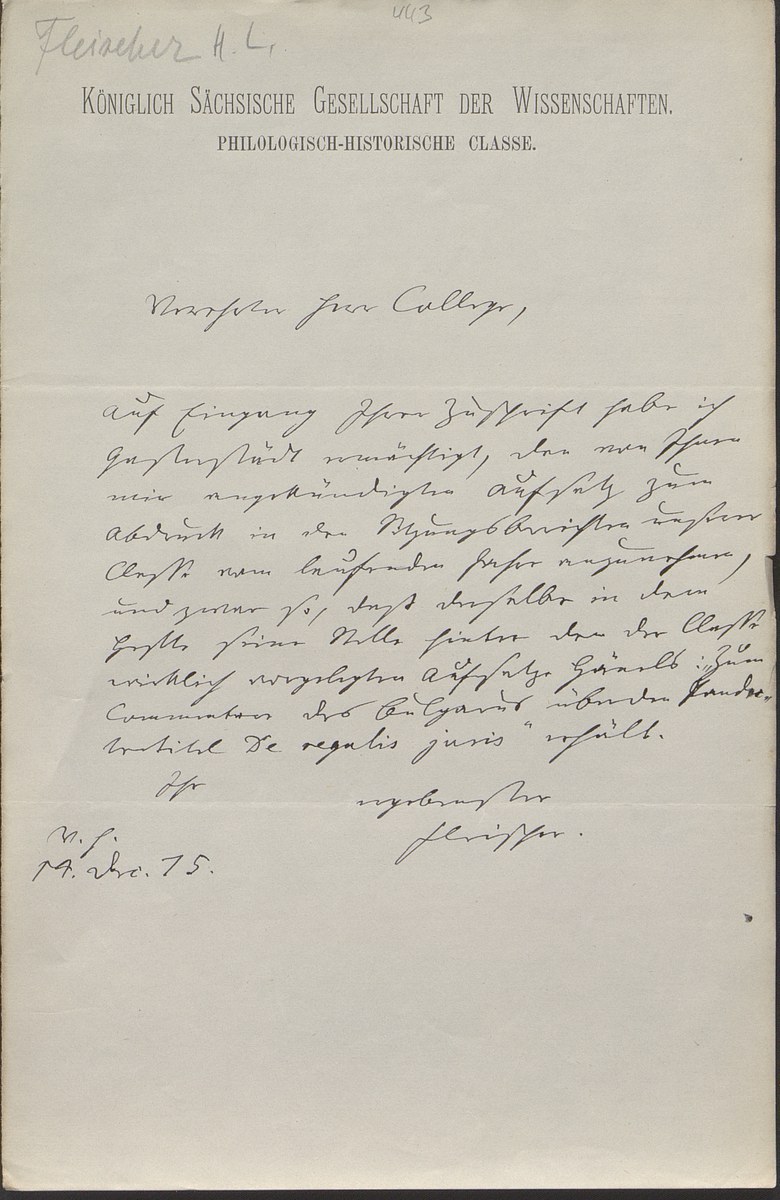 443
Fleischer H. L.
KÖNIGLICH SÄCHSISCHE GESELLSCHAFT DER WISSENSCHAFTEN.
PHILOLOGISCH-HISTORISCHE CLASSE.
Verehrter Herr College,
Auf Eingang Ihrer Zuschrift habe ich
ermächtigt, den von Ihnen
mir angekündigten Aufsatz zum
Abdruck in den Sitzungsberichten unserer
Classe vom laufenden Jahre anzunehmen,
und zwar so, daß derselbe in dem
Hefte seine Stelle hinter dem der Classe
wirklich vorgelegten Aufsatze Hänels: „Zum
Commentar des Bulgarus über den Pandec-
tentitel De regulis juris" erhält.
Ihr
ergebenster
Fleischer.
14. Dec. 75.